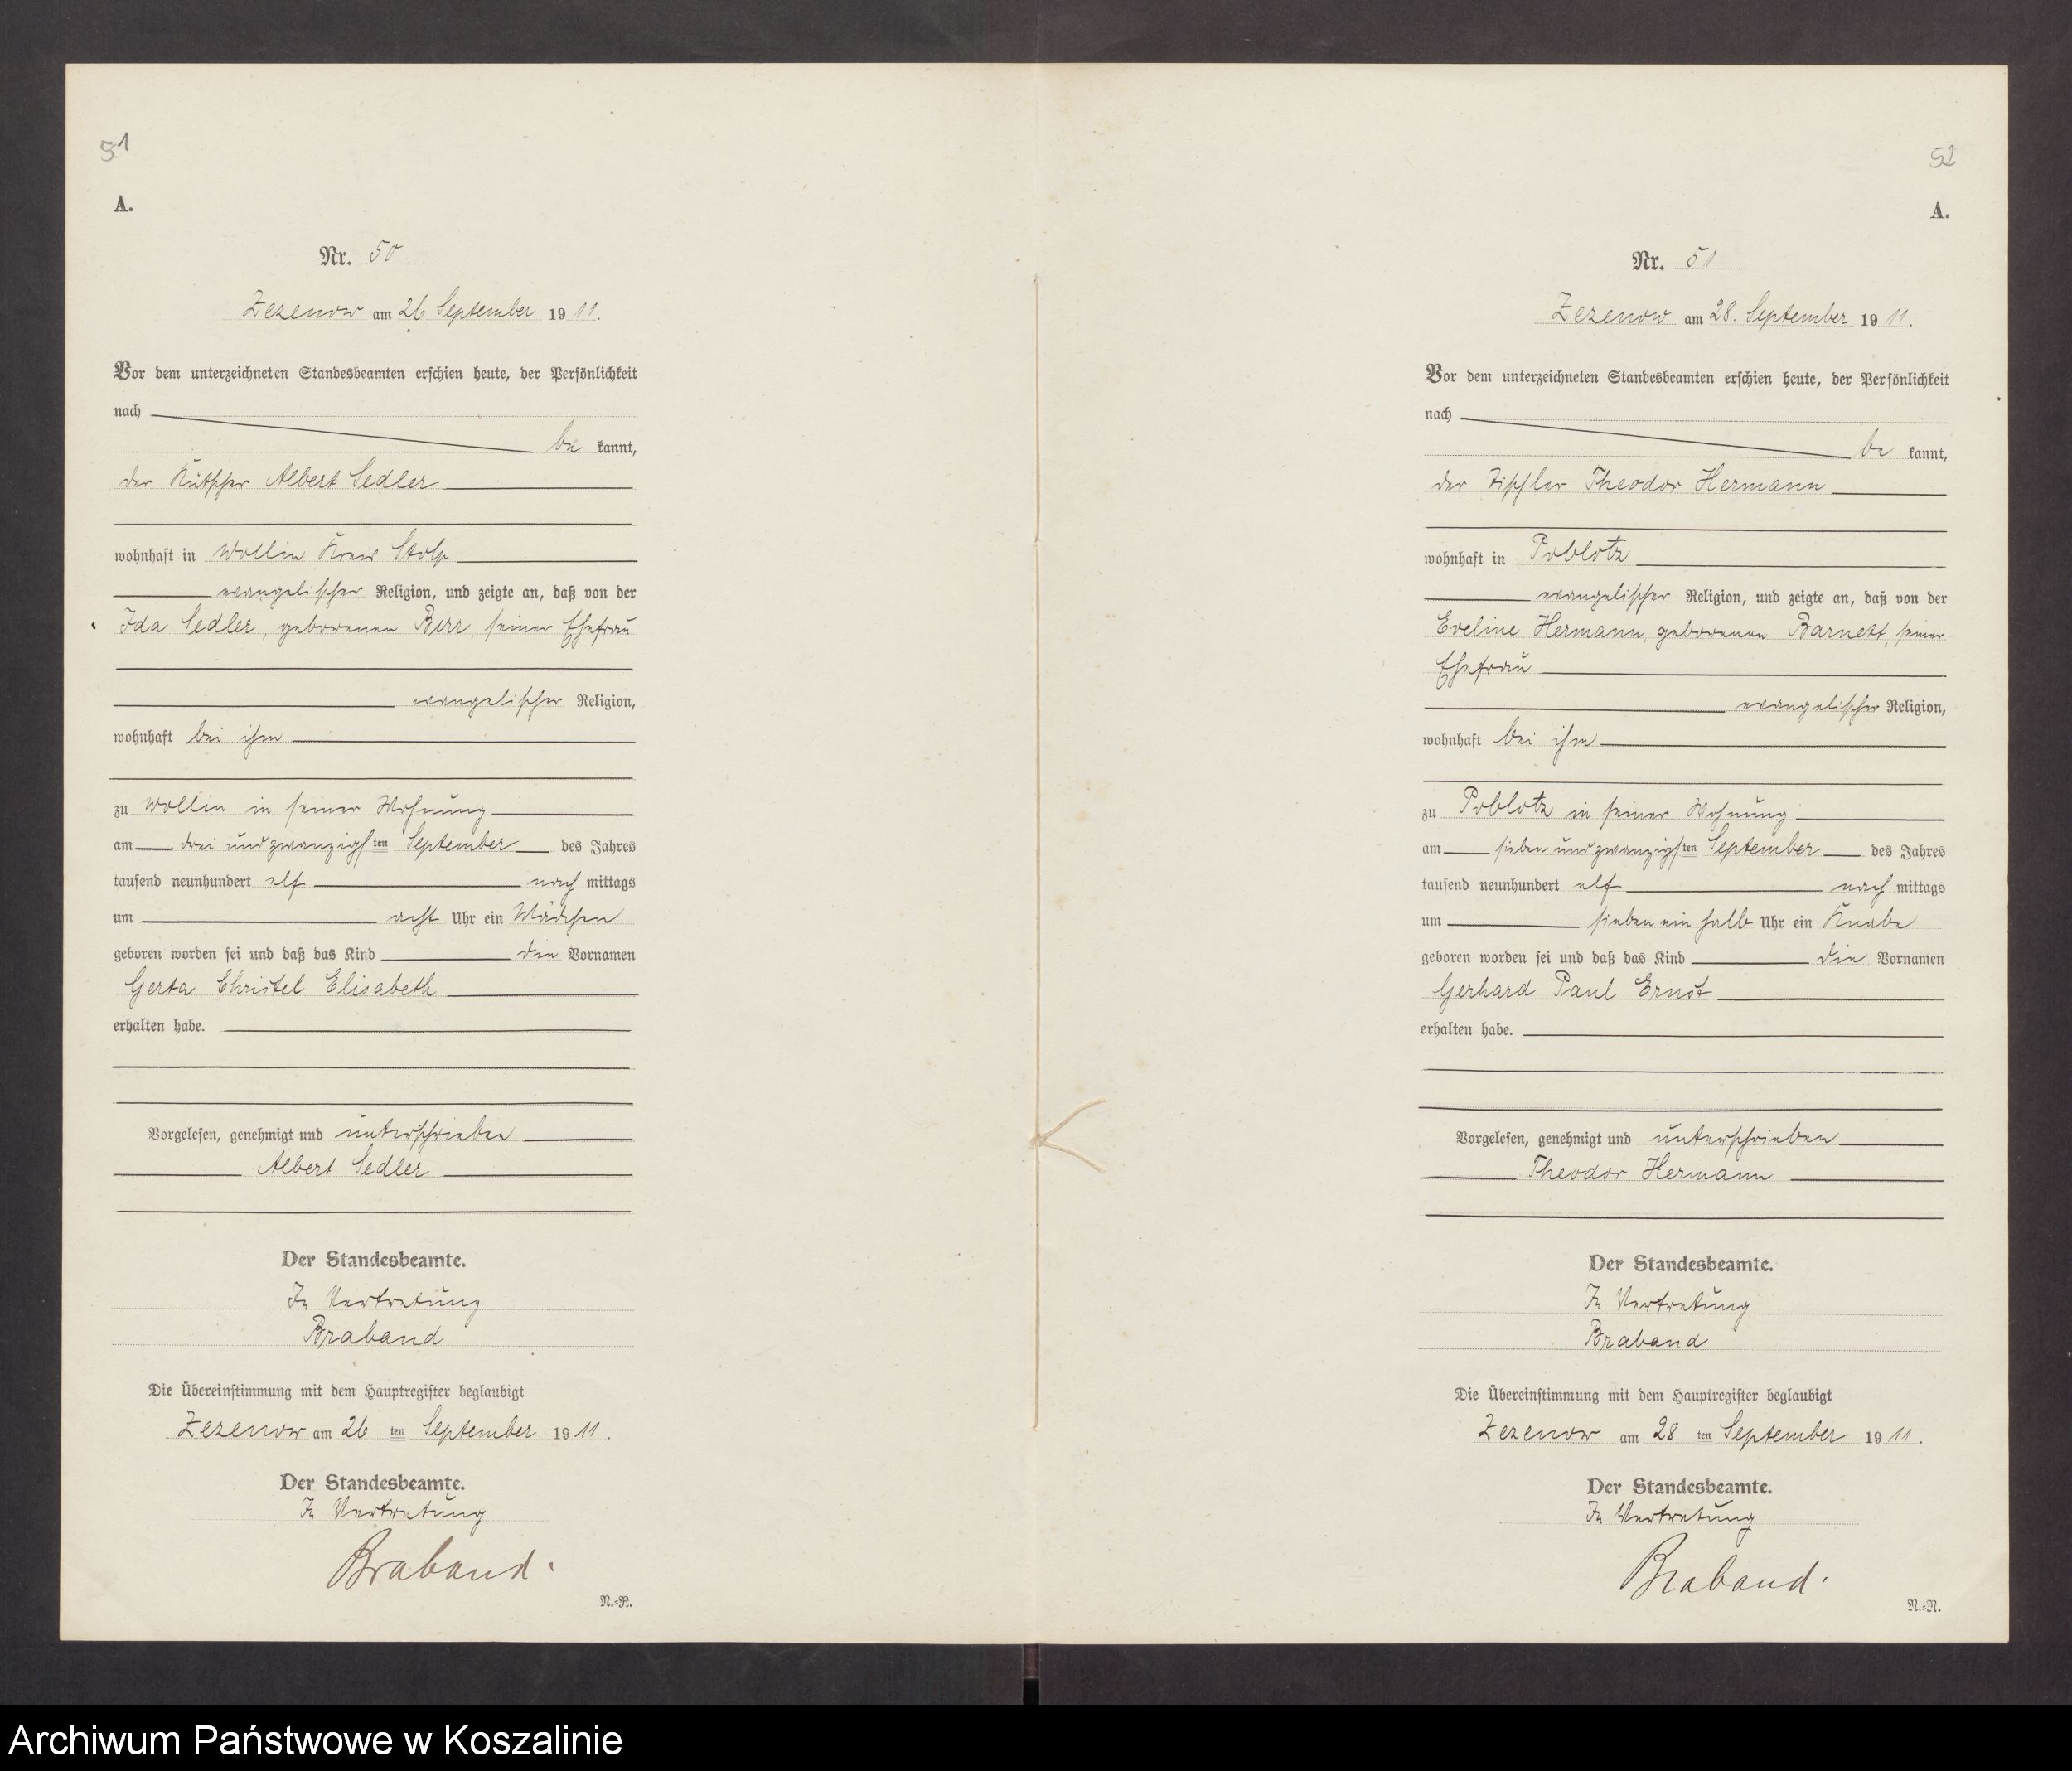 51
A.
Nr. 50
Zezenow am 26. September 1911.
Vor dem unterzeichneten Standesbeamten erschien heute, der Persönlichkeit
nach
be kannt,
der Kutscher Albert Sedler
wohnhaft in Wollin Kreis Stolp
evangelischer Religion, und zeigte an, daß von der
Ida Sedler, geborenen Birr, seiner Ehefrau
evangelischer Religion,
wohnhaft bei ihm
zu Wollin in seiner Wohnung
am drei und zwanzigsten September des Jahres
tausend neunhundert elf nach mittags
um acht Uhr ein Mädchen
geboren worden sei und daß das Kind die Vornamen
Gerta Christel Elisabeth
erhalten habe.
Vorgelesen, genehmigt und unterschrieben
Albert Sedler
Der Standesbeamte.
In Vertretung
Braband
Die Übereinstimmung mit dem Hauptregister beglaubigt
Zezenow am 26 ten September 1911.
Der Standesbeamte.
In Vertretung
Braband.
N.=R.
52
A.
Nr. 51
Zezenow am 28. September 1911.
Vor dem unterzeichneten Standesbeamten erschien heute, der Persönlichkeit
nach
be kannt,
der Tischler Theodor Hermann
wohnhaft in Poblotz
evangelischer Religion, und zeigte an, daß von der
Eveline Hermann, geborenen Barnett, seiner
Ehefrau
evangelischer Religion,
wohnhaft bei ihm
zu Poblotz in seiner Wohnung
am sieben und zwanzigsten September des Jahres
tausend neunhundert elf nach mittags
um sieben ein halb Uhr ein Knabe
geboren worden sei und daß das Kind die Vornamen
Gerhard Paul Ernst
erhalten habe.
Vorgelesen, genehmigt und unterschrieben
Theodor Hermann
Der Standesbeamte.
In Vertretung
Braband
Die Übereinstimmung mit dem Hauptregister beglaubigt
Zezenow am 28 ten September 1911.
Der Standesbeamte.
In Vertretung
Braband.
N.=R.
Archiwum Państwowe w Koszalinie